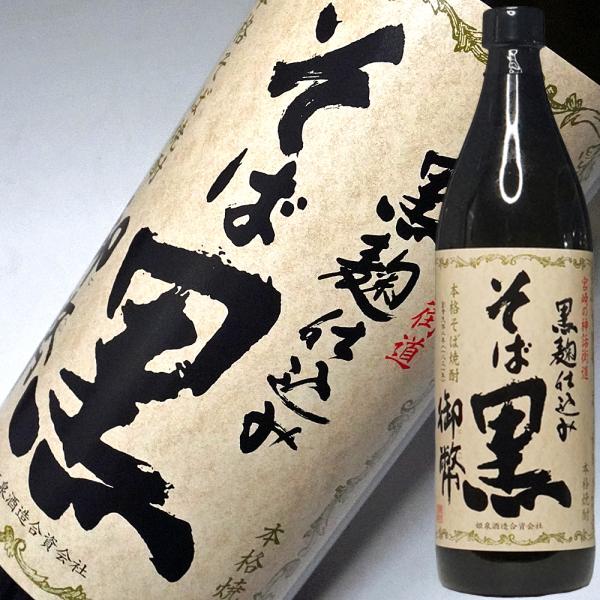 そば黒
黒麹仕込み
本格焼
姫泉酒造合資会社
宮崎の神話街道
黒麹仕込み
そば黒
御幣
本格そば焼酎
本格焼酎
姫泉酒造合資会社